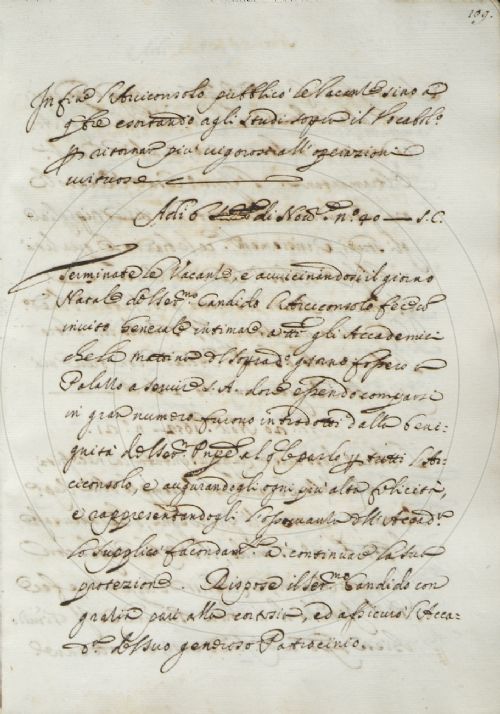 109.
In fine l'Arciconsolo pubblicò le Vacanze sino a
esortando agli Studi sopra il Vocabl.º
ritornar più vigorosi all'operazioni
virtuose
Adi 6 di Nov. nº. 40 — S.C.
Terminate le Vacanze, e avvicinandosi il giorno
Natale del Ser.mo Candido l'Arciconsolo fece
invito generale intimare a tti gli Accademici
che la mattina del giorno fossero a
Palazzo a servire S.A. dove essendo comparsi
in gran numero furono introdotti dalla beni-
gnità del Ser. Prpe al qle parlò p tutti l'Ar-
ciconsolo, e augurandogli ogni più alta felicità,
e rappresentandogli l'osservanza dell'Accad.
lo supplicò a continuare la sua
protezione. Rispose il Ser.mo Candido con
grazia pari alla cortesia, ed assicurò l'Acca-
d. del suo generoso Patrocinio.